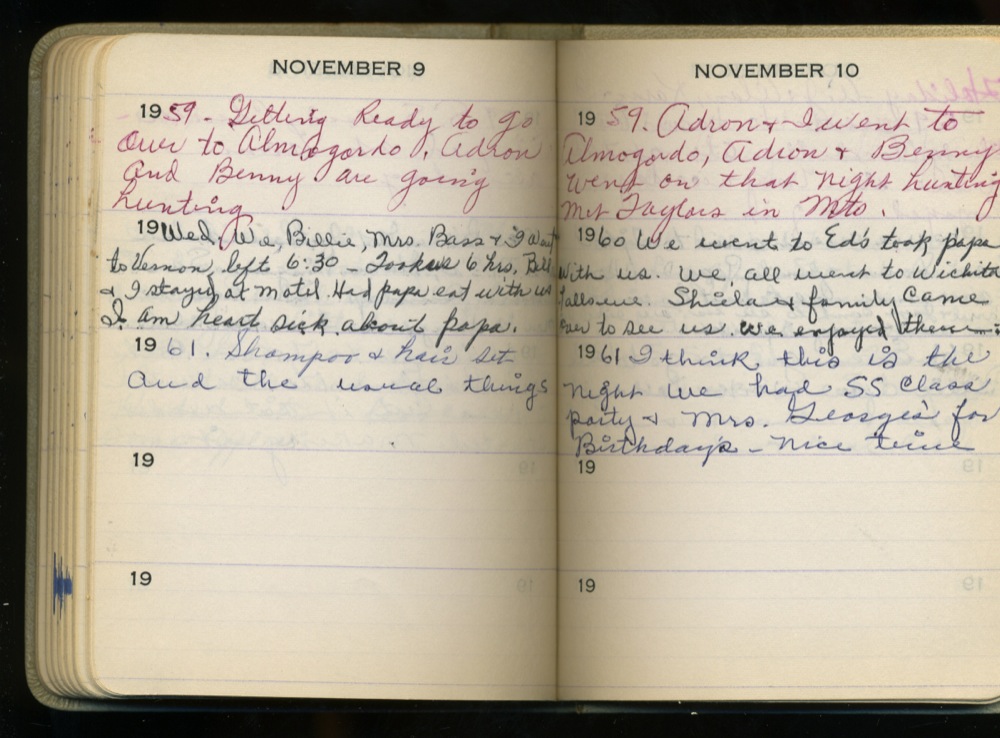 NOVEMBER 9
1959. - Getting Ready to go
Over to Almogordo, Adron
and Benny are going
hunting
19 Wed, We, Billie, Mrs. Bass & I went
to Vernon, left 6:30 - Took us 6 hrs. Bill
& I stayed at motel. Had papa eat with us
I am heart sick about papa.
1961. Shampoo & hair set
and the usual things
19
19
NOVEMBER 10
1959. Adron & I went to
Almogordo, Adron & Benny
went on that night hunting
met Taylors in Mts.
1960 We went to Ed's took papa
with us. We all went to Wichita
Falls Shiela & family came
over to see us. we enjoyed them
1961 I think this is the
night we had SS Class
party & Mrs. George's for
Birthday's - nice time
19
19